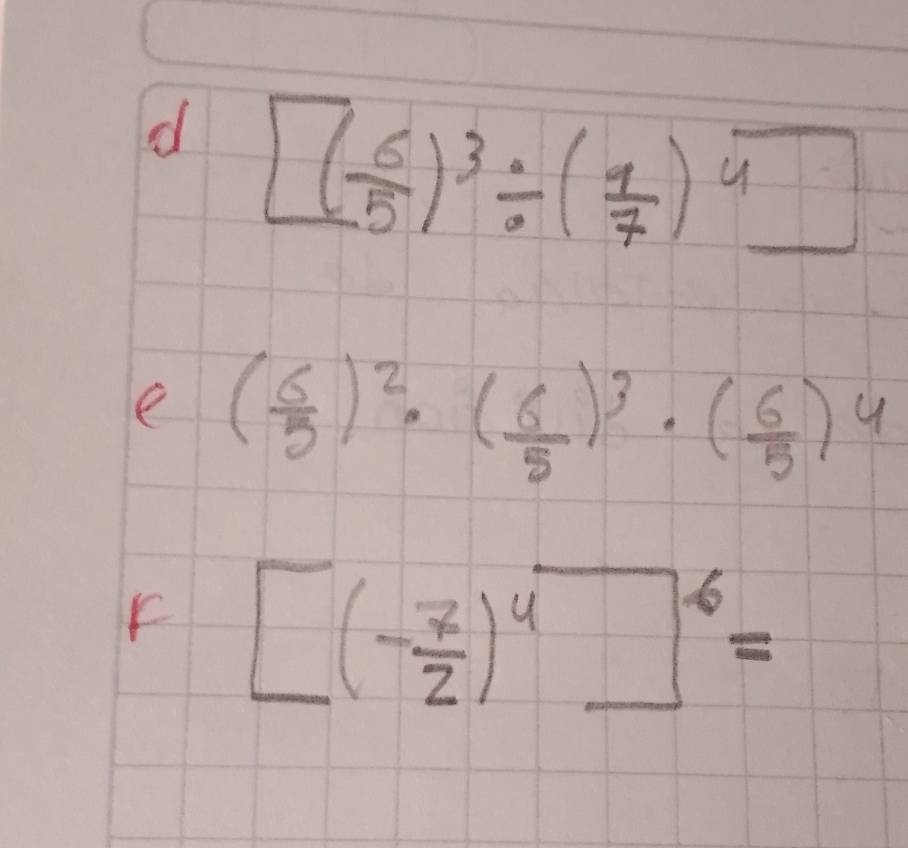 d [(6/5)^3 ÷ (1/7)^4]
e (6/5)^2 · (6/5)^3 · (6/5)^4
F [(-7/2)^4]^6 =